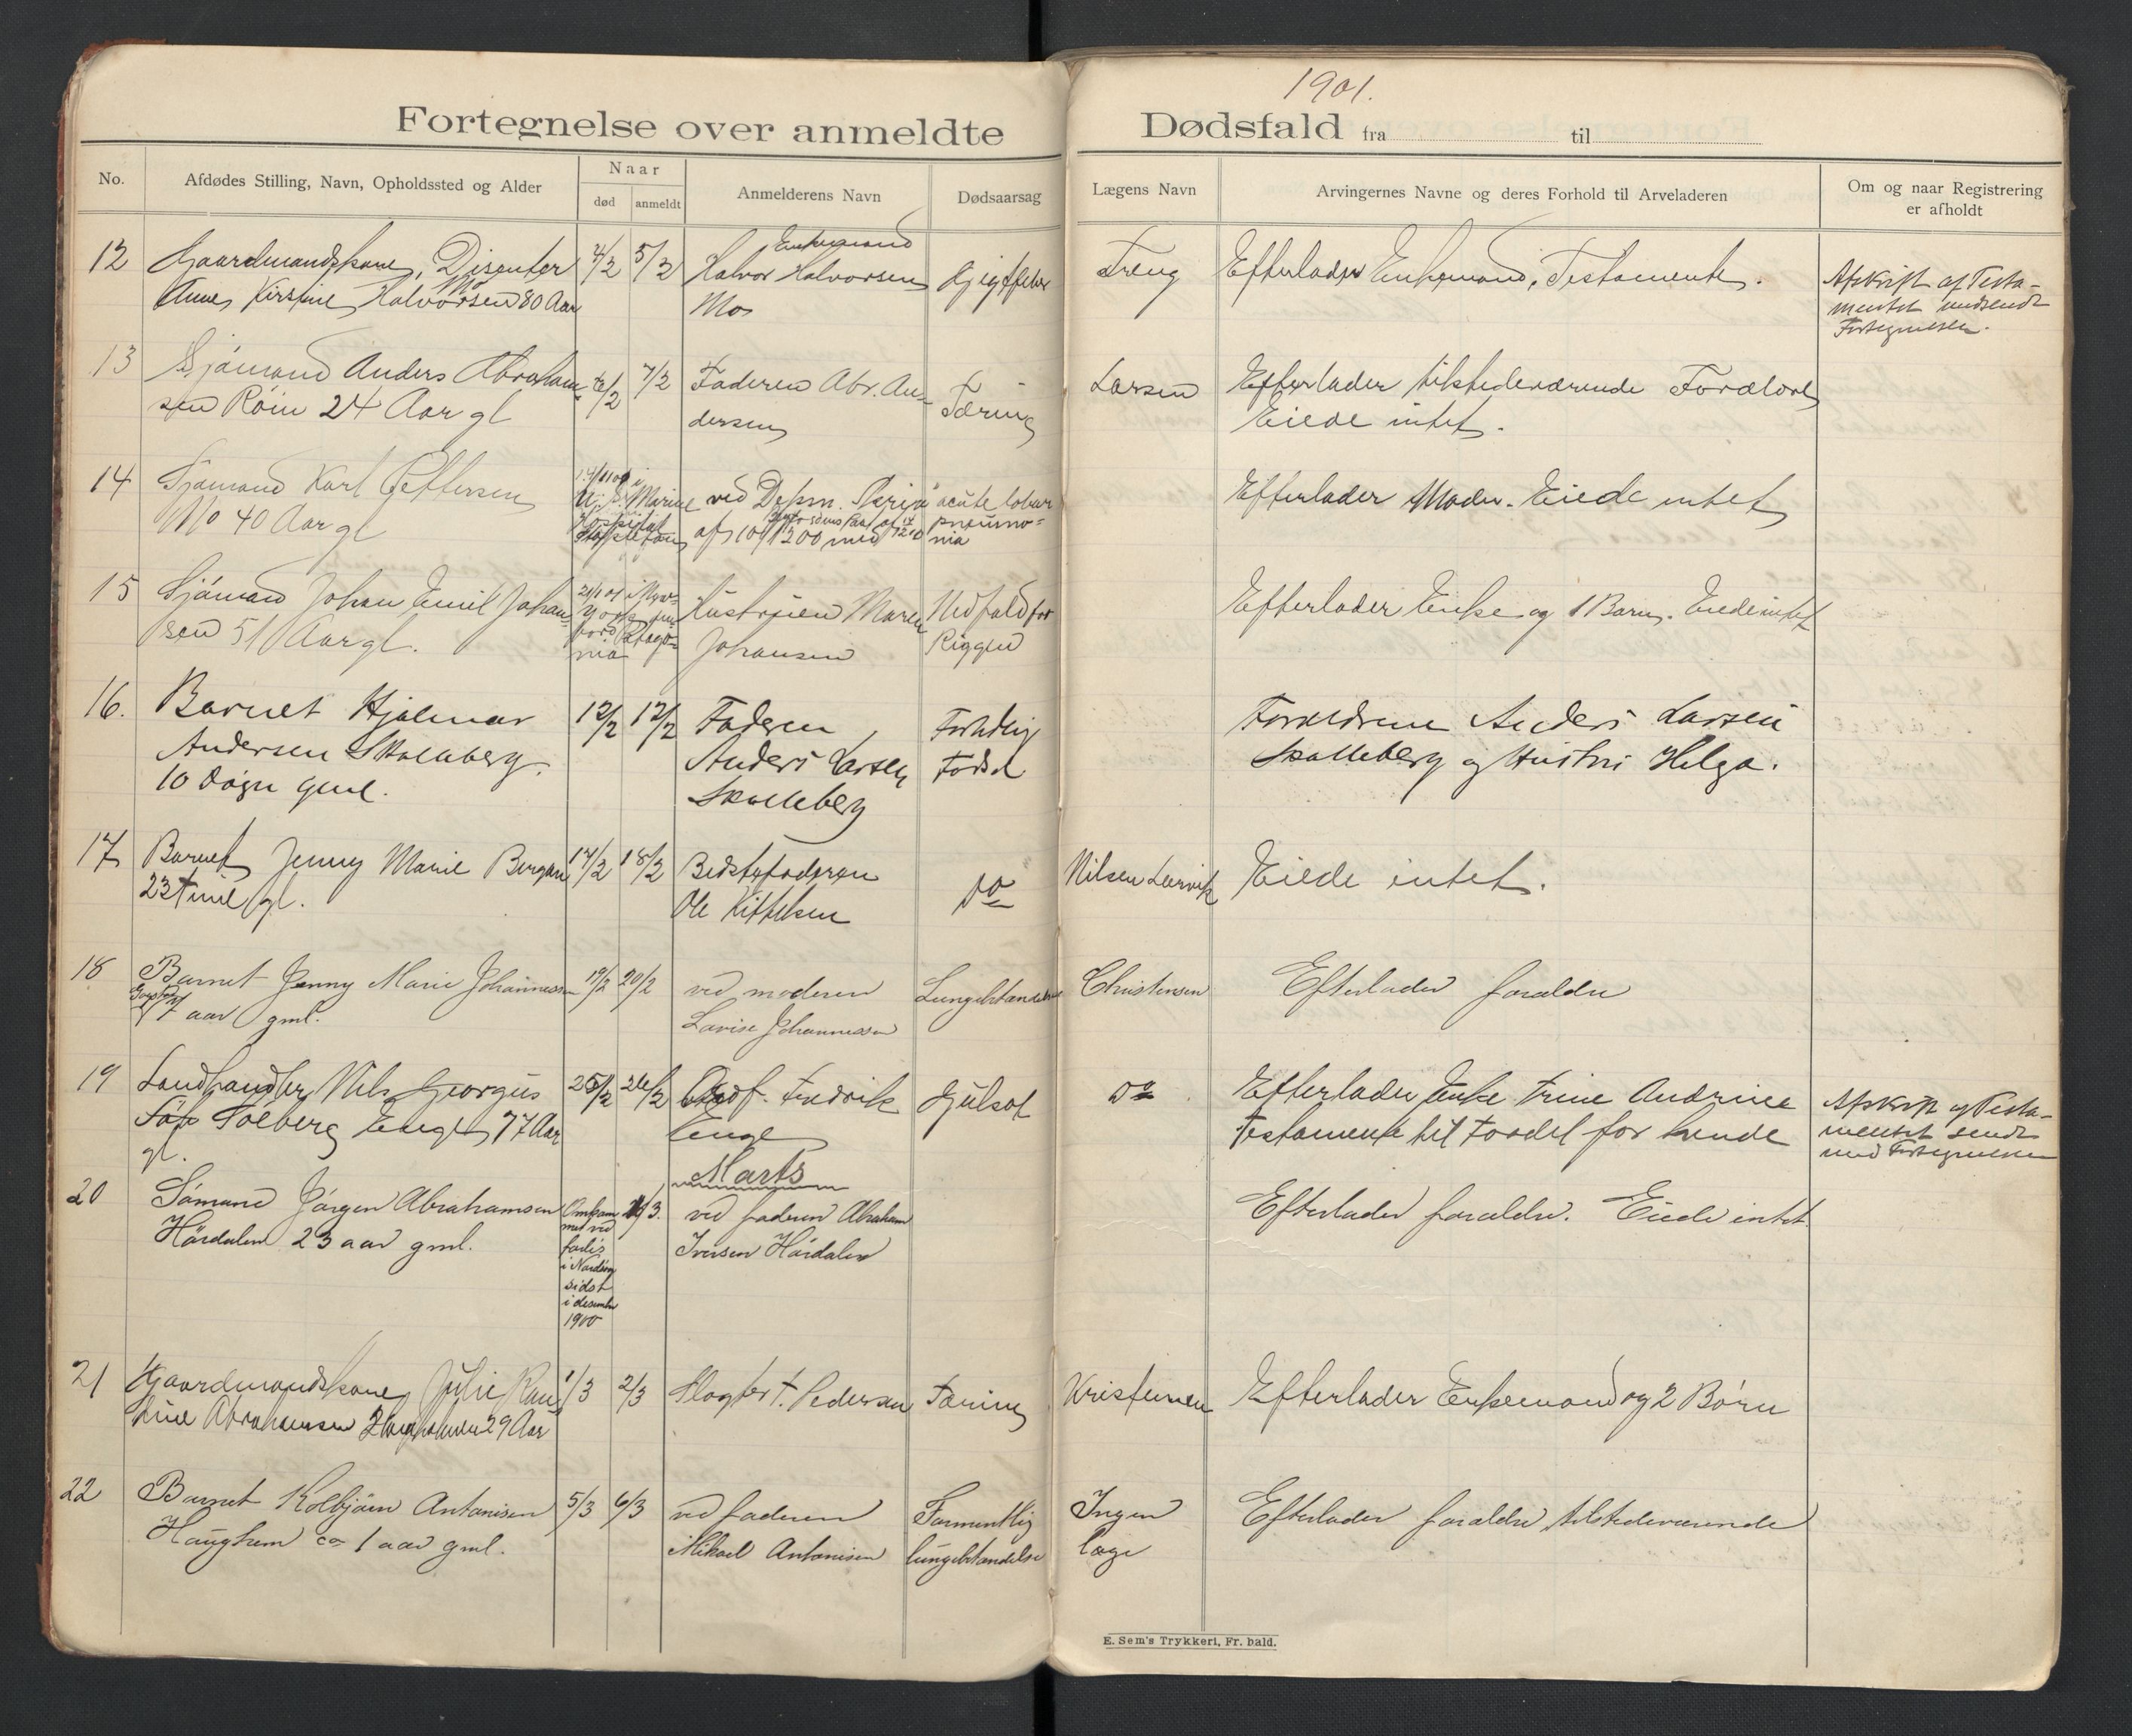 1901.
Fortegnelse over anmeldte Dødsfald fra til
No.
Afdødes Stilling, Navn, Opholdssted og Alder
Naar
død
anmeldt
Anmelderens Navn
Dødsaarsag
Lægens Navn
Arvingernes Navne og deres Forhold til Arveladeren
Om og naar Registrering
er afholdt
12
Gaardmandskone, Disenter
Anne Kirstine Halvorsen 80 Aar
Mo
4/2
5/2
Enkemand
Halvor Halvorsen
Mo
Gigtfeber
Treng
Efterlader Enkemand, Testamente.
Afskrift af Testa-
mentet indsendt
Fortegnelsen.
13
Sjömand Anders Abraham-
sen Röin 24 Aar gl
6/2
7/2
Faderen Abr. An-
dersen
Tæring
Larsen
Efterlader tilstedeværende Forældre
Eiede intet.
14
Sjömand Karl
Mo 40 Aar gl
Marine
Hospital
Stapleton
ved Depn. Skriv
af 10/1 1200 med
acute lobar
pneumo-
nia
Efterlader Moder. Eiede intet
15
Sjömand Johan Emil Johan-
sen 51 Aar gl.
York
nia
Hustruen Maren
Johansen
Nedfald for
Riggen
Efterlader Enke og 1 Barn. Eiede intet
16.
Barnet Hjalmar
Andersen Skalleberg.
10 Døgn gml.
12/2
12/2
Faderen
Anders Larsen
Skalleberg
Fortidlig
Fødsel
Forældrene Anders Larsen
Skalleberg og Hustru Helga.
17
Barnet Jenny Marie Bergan
23 Timer gl.
17/2
18/2
Bedstefaderen
Ole Kittelsen
Do
Nilsen Larvik
Eiede intet.
18
Barnet Jenny Marie Johannessen
7 aar gml.
19/2
20/2
ved moderen
Lovise Johannessen
Lungebetændelse
Christensen
Efterlader foraldre
19
Landhandler Nils Georgius
Tolberg Enge 77 Aar
gl.
25/2
26/2
Fredrik
Enge
Gulsot
Do
Efterlader Enke Trine Andrine
Testamente til Fordel for hende
Afskrift af Testa-
mentet sendt
med Fortegnelsen
Marts
20
Sömand Jörgen Abrahamsen
Hördalen 23 aar gml.
Omkom-
met ved
forlis
i Nordsöen
sidst
i desember
1900
1/3.
ved faderen Abraham
Iversen Hördalen
Efterlader foraldre. Eiede intet
21
Gaardmandskone Julie Kau-
line Abrahamsen 29 Aar
1/3
2/3
Slagter T. Pedersen
Tæring
Kristensen
Efterlader Enkemand og 2 Børn
22
Barnet Kolbjörn Antonisen
Haughem ca 1 aar gml.
5/3
6/3
ved faderen
Mikael Antonisen
Formentlig
lungebetændelse
Ingen
læge
Efterlader foraldre tilstedeværende
E. Sem's Trykkeri, Fr. hald.